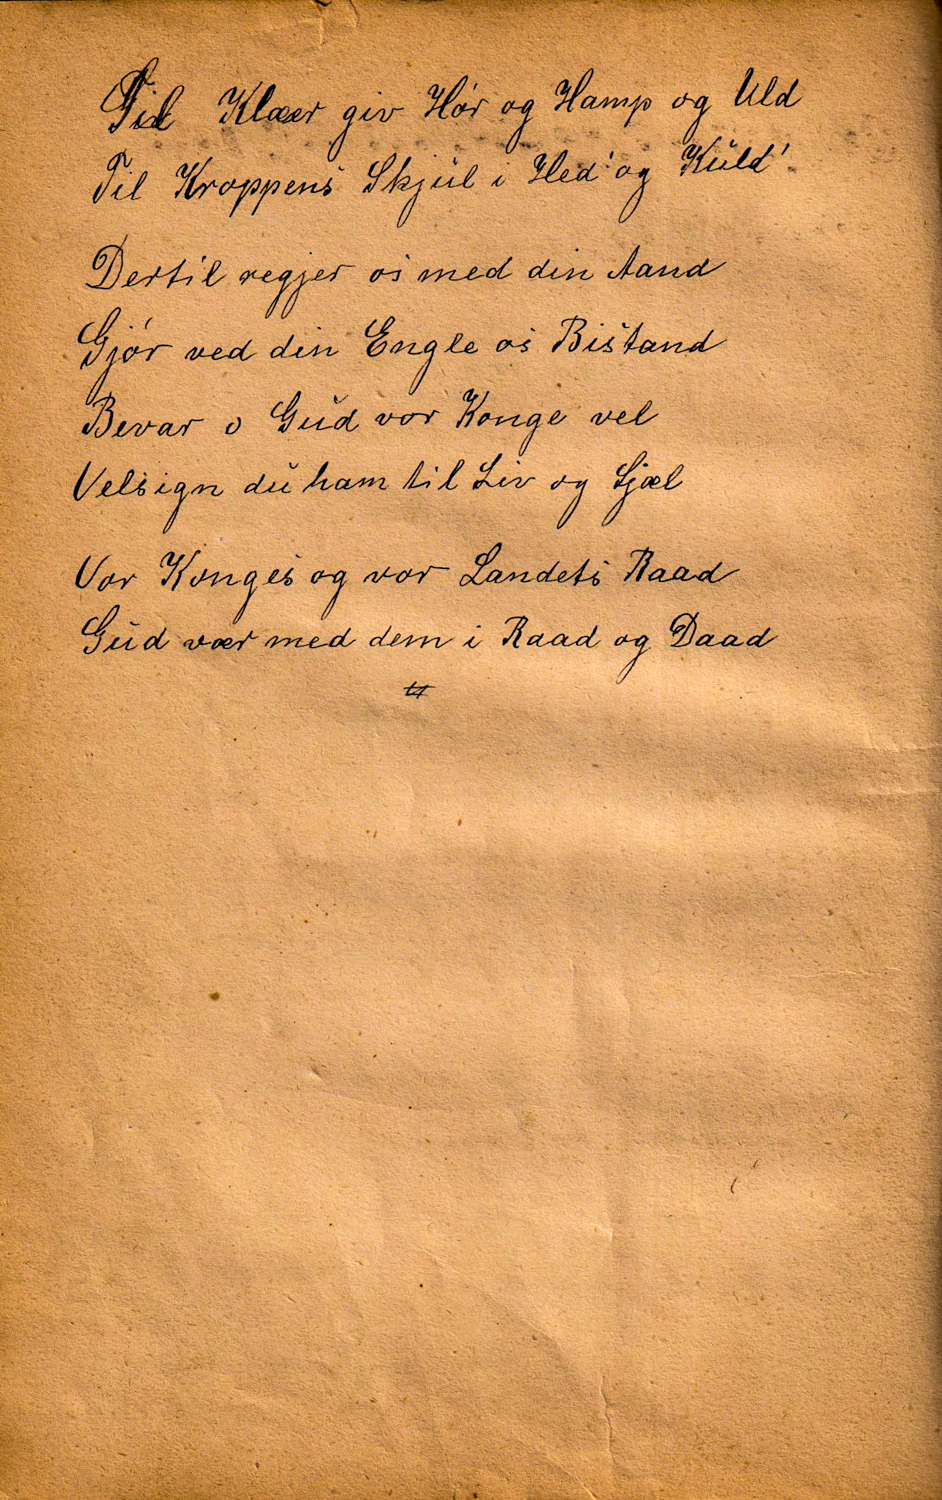 Til Klæer giv Hør og Hamp og Uld
Til Kroppens Skjul i Hed' og Kuld'
Dertil regjer os med din Aand
Gjór ved din Engle os Bistand
Bevar o Gud vor Konge vel
Velsign du ham til Liv og Sjæl
Vor Konges og vor Landets Raad
Gud vær med dem i Raad og Daad